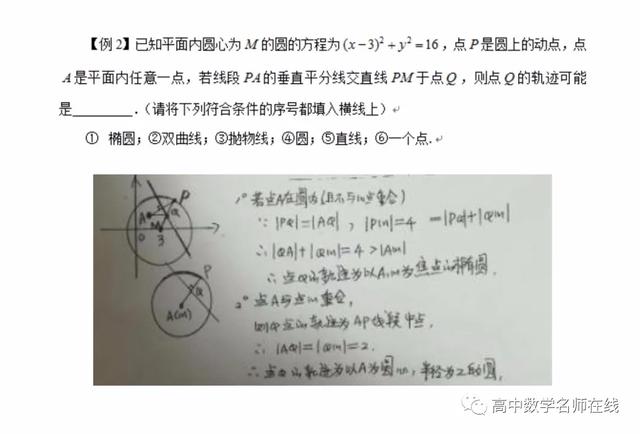 【例2】已知平面内圆心为M的圆的方程为(x-3)²+y²=16，点P是圆上的动点，点
A是平面内任意一点，若线段PA的垂直平分线交直线PM于点Q，则点Q的轨迹可能
是________.（请将下列符合条件的序号都填入横线上）
① 椭圆；②双曲线；③抛物线；④圆；⑤直线；⑥一个点.
1° 若点A在圆内(且不与M点重合)
∵ |PQ|=|AQ|，|PM|=4 =|PQ|+|QM|
∴ |QA|+|QM|=4>|AM|
∴ 点Q的轨迹为以A,M为焦点的椭圆.
2° 点A与点M重合,
则Q点的轨迹为AP线段中点,
∴ |AQ|=|QM|=2.
∴ 点Q的轨迹为以A为圆心，半径为2的圆.
P
A
Q
M
O
3
P
Q
A(M)
高中数学名师在线